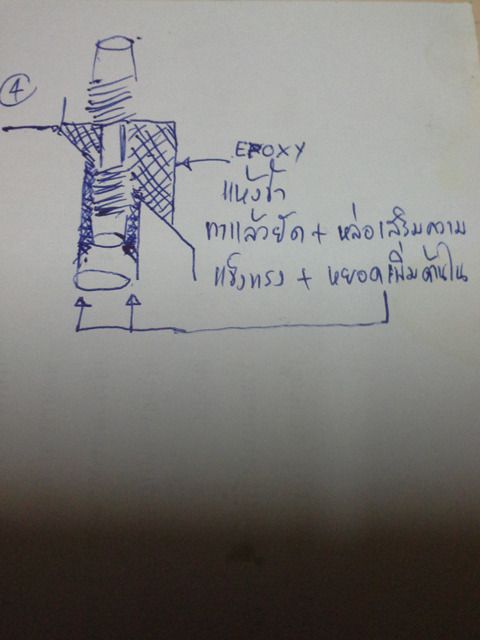 ④
EPOXY
แห้งช้า
ทาแล้วยัด + หล่อเสริมความ
แข็งแรง + หยอดเพิ่มด้านใน